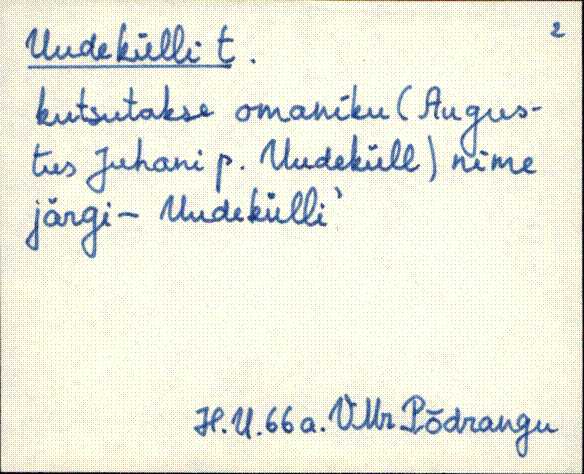 2
Uudekülli t.
kutsutakse omaniku (Augus-
tus Juhani p. Uudeküll) nime
järgi - Uudekülli`
H.U. 66 a. VMr Põdrangu